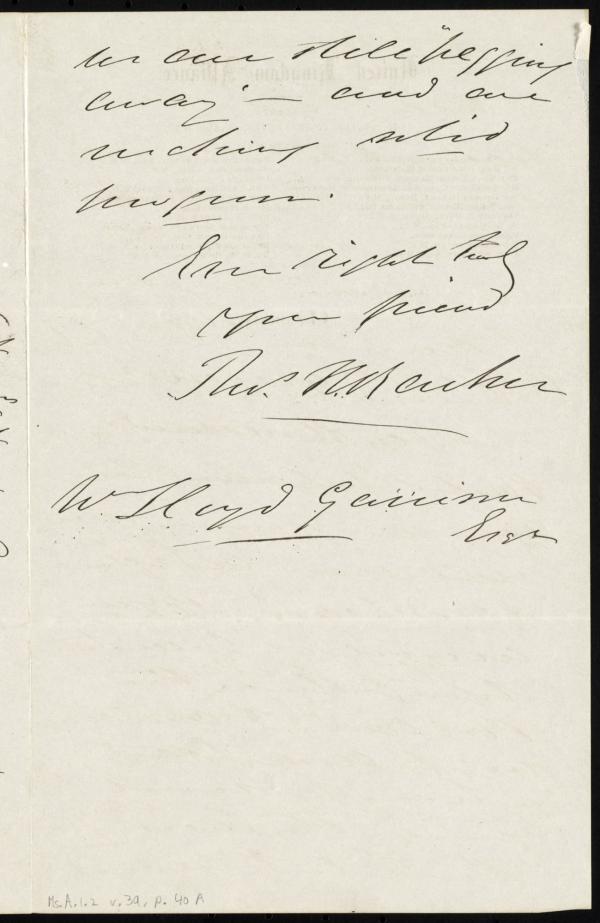 we are still "pegging
away" — and are
making solid
progress.
Ever right truly
your friend
Thos. H. Barker
Wm Lloyd Garrison
Esqr
Ms.A.1.2 v.39, p. 40 A